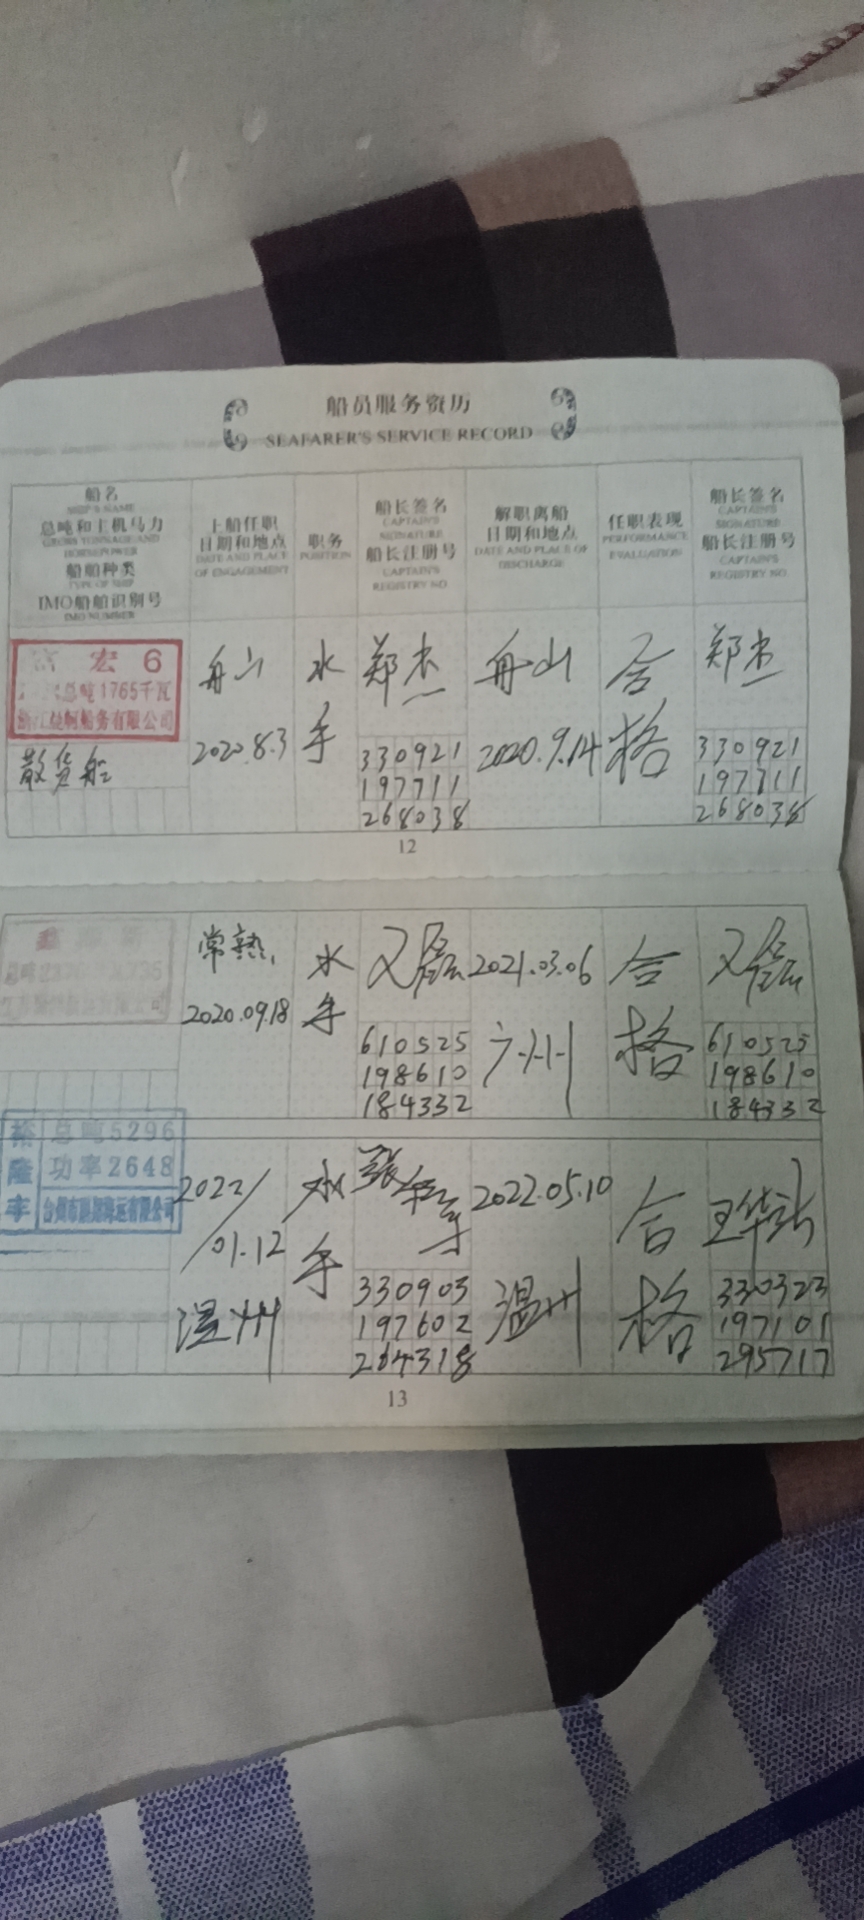 船员服务资历
SEAFARER'S SERVICE RECORD
船名
SHIP'S NAME
总吨和主机马力
GROSS TONNAGE AND
HORSEPOWER
船舶种类
TYPE OF SHIP
IMO船舶识别号
IMO NUMBER
上船任职
日期和地点
DATE AND PLACE
OF ENGAGEMENT
职务
POSITION
船长签名
CAPTAIN'S
SIGNATURE
船长注册号
CAPTAIN'S
REGISTRY NO
解职离船
日期和地点
DATE AND PLACE OF
DISCHARGE
任职表现
PERFORMANCE
EVALUATION
船长签名
CAPTAIN'S
SIGNATURE
船长注册号
CAPTAIN'S
REGISTRY NO
宏6
总吨1765千瓦
船务有限公司
散货船
舟山
2020.8.3
水
手
郑杰
330921
197711
268038
舟山
2020.9.14
合
格
郑杰
330921
197711
268038
12
常熟
2020.09.18
水
手
610525
198610
184332
2021.03.06
广州
合
格
610525
198610
184332
裕隆丰
总吨5296
功率2648
海运有限公司
2022/
/01.12
温州
水
手
330903
197602
264318
2022.05.10
温州
合
格
330323
197101
295717
13